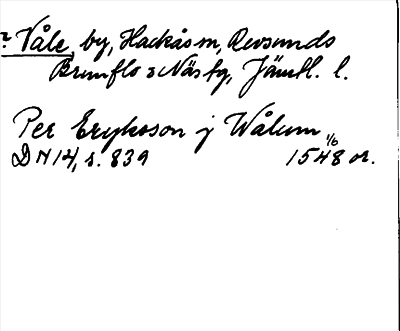 ? Våle, by, Hackås sn, Revsunds
Brunflo o Näs tg, Jämtl. l.
Per Eryksson j Wålum
DN 14, s. 839 1/6 1548 or.